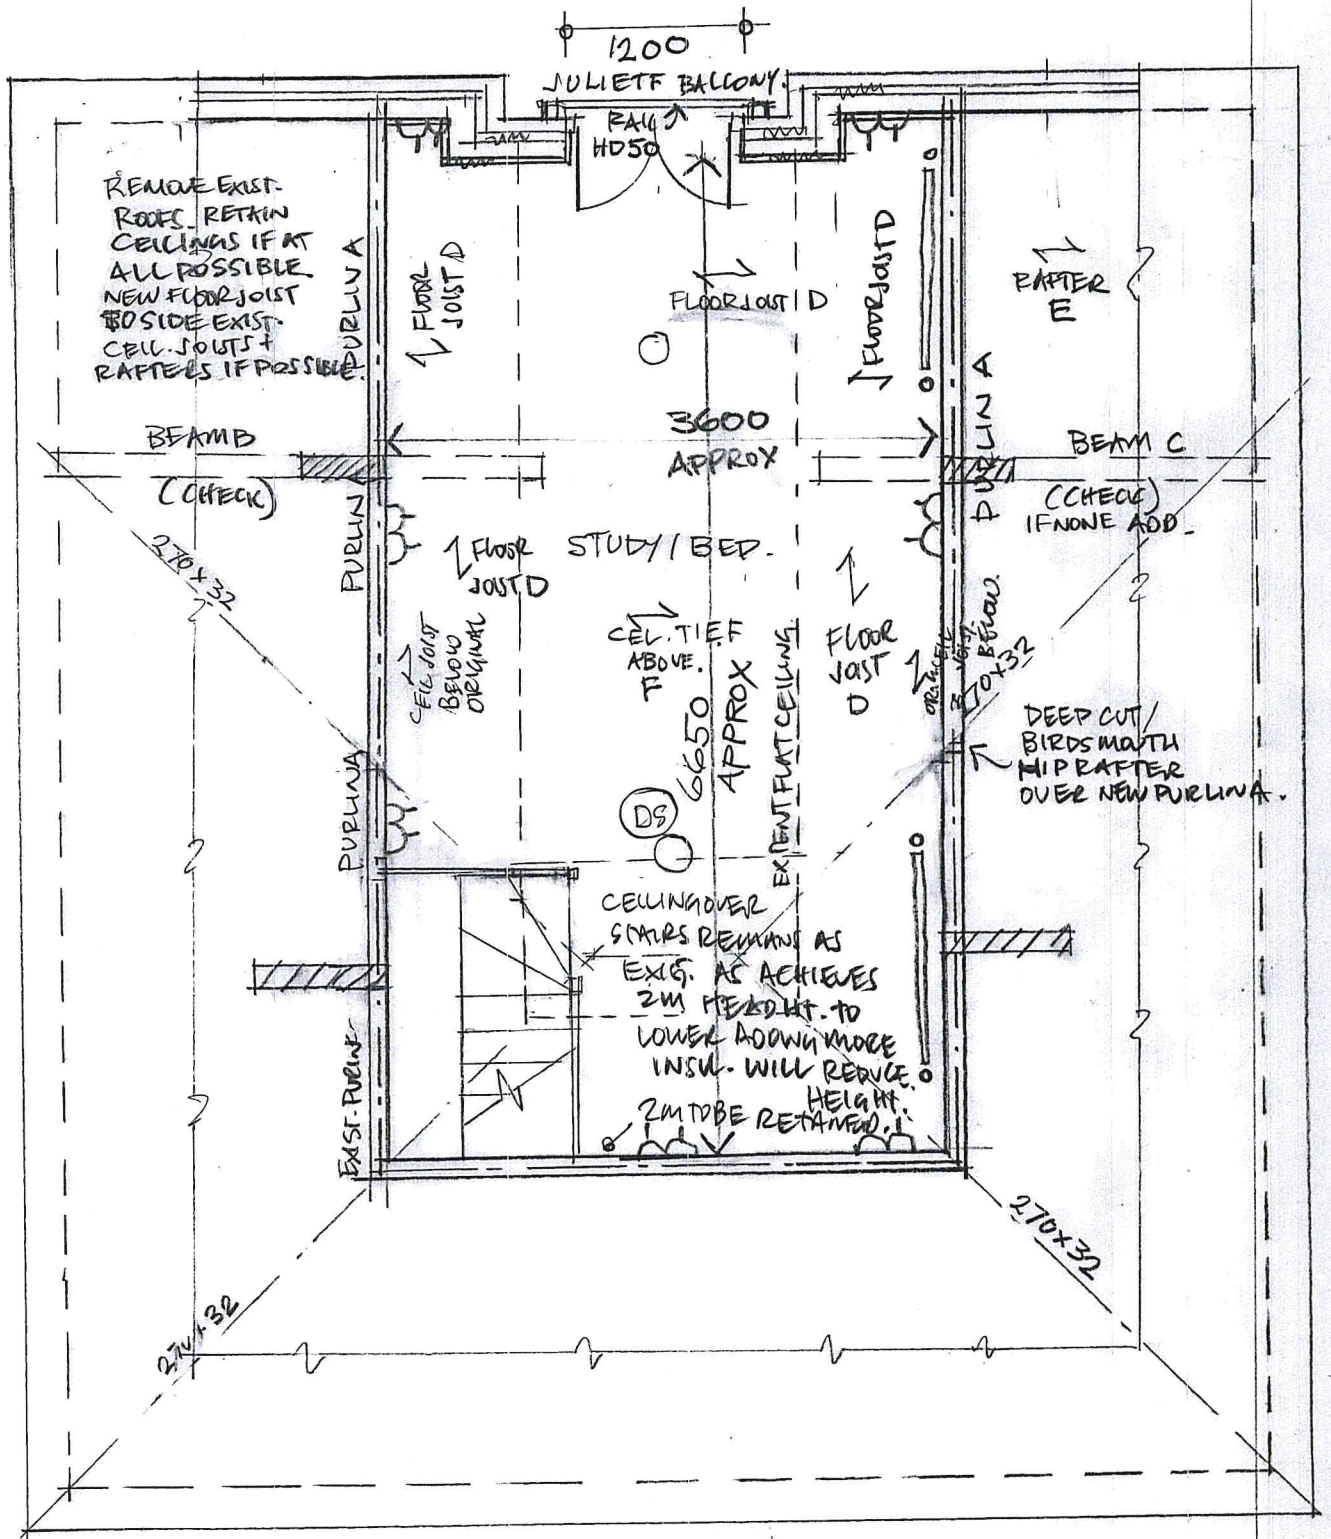 1200
JULIETF BALCONY.
RAIL
HD50
REMOVE EXIST.
ROOFS. RETAIN
CEILINGS IF AT
ALL POSSIBLE.
NEW FLOOR JOIST
TO SIDE EXIST.
CEIL. JOISTS +
RAFTERS IF POSSIBLE.
PURLIN A
FLOOR
JOIST D
FLOOR JOIST D
FLOOR JOIST D
RAFTER
E
3600
APPROX
PURLIN A
BEAM B
(CHECK)
BEAM C
(CHECK)
IF NONE ADD.
270x32
PURLIN A
FLOOR
JOIST D
STUDY / BED.
CEIL. JOIST
BELOW
ORIGINAL
CEL. TIE F
ABOVE.
F
6650
APPROX
EXTENT FLAT CEILING
FLOOR
JOIST
D
BELOW.
270x32
DEEP CUT/
BIRDSMOUTH
HIP RAFTER
OVER NEW PURLIN A.
PURLIN A
DS
CEILING OVER
STAIRS REMAINS AS
EXIG. AS ACHIEVES
2M HEAD HT. TO
LOWER ADDING MORE
INSUL. WILL REDUCE
HEIGHT.
2M TO BE RETAINED.
EXIST. PURLIN
270x32
270x32